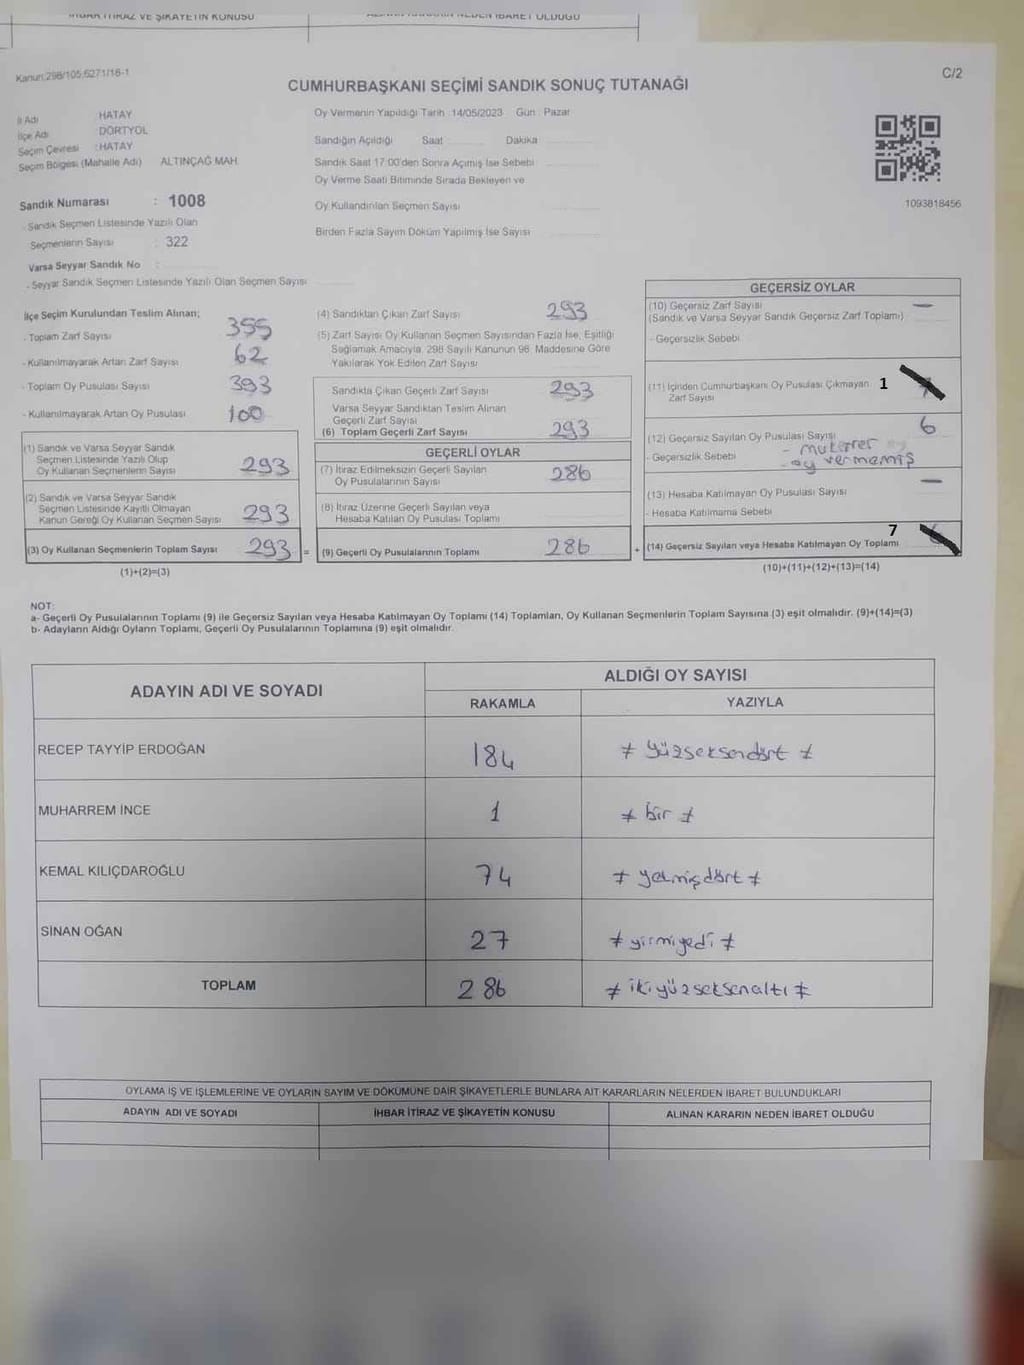 İHBAR İTİRAZ VE ŞİKAYETİN KONUSU
Kanun:298/105;6271/18-1
C/2
CUMHURBAŞKANI SEÇİMİ SANDIK SONUÇ TUTANAĞI
İl Adı : HATAY
İlçe Adı : DÖRTYOL
Seçim Çevresi : HATAY
Seçim Bölgesi (Mahalle Adı) ALTINÇAĞ MAH.
Oy Vermenin Yapıldığı Tarih 14/05/2023 Gün : Pazar
Sandığın Açıldığı Saat Dakika
Sandık Saat 17:00'den Sonra Açımış İse Sebebi
Oy Verme Saati Bitiminde Sırada Bekleyen ve
Oy Kullandırılan Seçmen Sayısı
Birden Fazla Sayım Döküm Yapılmış İse Sayısı
1093818456
Sandık Numarası : 1008
- Sandık Seçmen Listesinde Yazılı Olan
Seçmenlerin Sayısı : 322
Varsa Seyyar Sandık No :
- Seyyar Sandık Seçmen Listesinde Yazılı Olan Seçmen Sayısı
İlçe Seçim Kurulundan Teslim Alınan;
- Toplam Zarf Sayısı 355
- Kullanılmayarak Artan Zarf Sayısı 62
- Toplam Oy Pusulası Sayısı 393
- Kullanılmayarak Artan Oy Pusulası 100
(1) Sandık ve Varsa Seyyar Sandık
Seçmen Listesinde Yazılı Olup
Oy Kullanan Seçmenlerin Sayısı 293
(2) Sandık ve Varsa Seyyar Sandık
Seçmen Listesinde Kayıtlı Olmayan
Kanun Gereği Oy Kullanan Seçmen Sayısı 293
(3) Oy Kullanan Seçmenlerin Toplam Sayısı 293 =
(1)+(2)=(3)
(4) Sandıktan Çıkan Zarf Sayısı 293
(5) Zarf Sayısı Oy Kullanan Seçmen Sayısından Fazla İse, Eşitliği
Sağlamak Amacıyla, 298 Sayılı Kanunun 98. Maddesine Göre
Yakılarak Yok Edilen Zarf Sayısı
Sandıkta Çıkan Geçerli Zarf Sayısı 293
Varsa Seyyar Sandıktan Teslim Alınan
Geçerli Zarf Sayısı
(6) Toplam Geçerli Zarf Sayısı 293
GEÇERLİ OYLAR
(7) İtiraz Edilmeksizin Geçerli Sayılan
Oy Pusulalarının Sayısı 286
(8) İtiraz Üzerine Geçerli Sayılan veya
Hesaba Katılan Oy Pusulası Toplamı
(9) Geçerli Oy Pusulalarının Toplamı 286 +
GEÇERSİZ OYLAR
(10) Geçersiz Zarf Sayısı —
(Sandık ve Varsa Seyyar Sandık Geçersiz Zarf Toplamı)
- Geçersizlik Sebebi
(11) İçinden Cumhurbaşkanı Oy Pusulası Çıkmayan 1
Zarf Sayısı
(12) Geçersiz Sayılan Oy Pusulası Sayısı 6
- Geçersizlik Sebebi - mükerrer oy
- oy vermemiş
(13) Hesaba Katılmayan Oy Pusulası Sayısı —
- Hesaba Katılmama Sebebi
(14) Geçersiz Sayılan veya Hesaba Katılmayan Oy Toplamı 7
(10)+(11)+(12)+(13)=(14)
NOT:
a- Geçerli Oy Pusulalarının Toplamı (9) ile Geçersiz Sayılan veya Hesaba Katılmayan Oy Toplamı (14) Toplamları, Oy Kullanan Seçmenlerin Toplam Sayısına (3) eşit olmalıdır. (9)+(14)=(3)
b- Adayların Aldığı Oyların Toplamı, Geçerli Oy Pusulalarının Toplamına (9) eşit olmalıdır.
ADAYIN ADI VE SOYADI
ALDIĞI OY SAYISI
RAKAMLA YAZIYLA
RECEP TAYYİP ERDOĞAN 184 ≠ yüzseksendört ≠
MUHARREM İNCE 1 ≠ bir ≠
KEMAL KILIÇDAROĞLU 74 ≠ yetmişdört ≠
SİNAN OĞAN 27 ≠ yirmiyedi ≠
TOPLAM 286 ≠ ikiyüzseksenaltı ≠
OYLAMA İŞ VE İŞLEMLERİNE VE OYLARIN SAYIM VE DÖKÜMÜNE DAİR ŞİKAYETLERLE BUNLARA AİT KARARLARIN NELERDEN İBARET BULUNDUKLARI
ADAYIN ADI VE SOYADI İHBAR İTİRAZ VE ŞİKAYETİN KONUSU ALINAN KARARIN NEDEN İBARET OLDUĞU